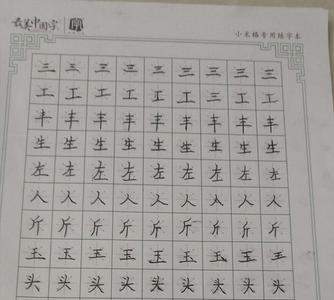 最美中国字
小米格专用练字本
三 三 三 三 三 三 三 三
工 工 工 工 工 工 工 工
丰 丰 丰 丰 丰 丰 丰 丰
生 生 生 生 生 生 生 生
左 左 左 左 左 左 左 左
人 人 人 人 人 人 人 人
斤 斤 斤 斤 斤 斤 斤 斤
玉 玉 玉 玉 玉 玉 玉 玉
头 头 头 头 头 头 头 头